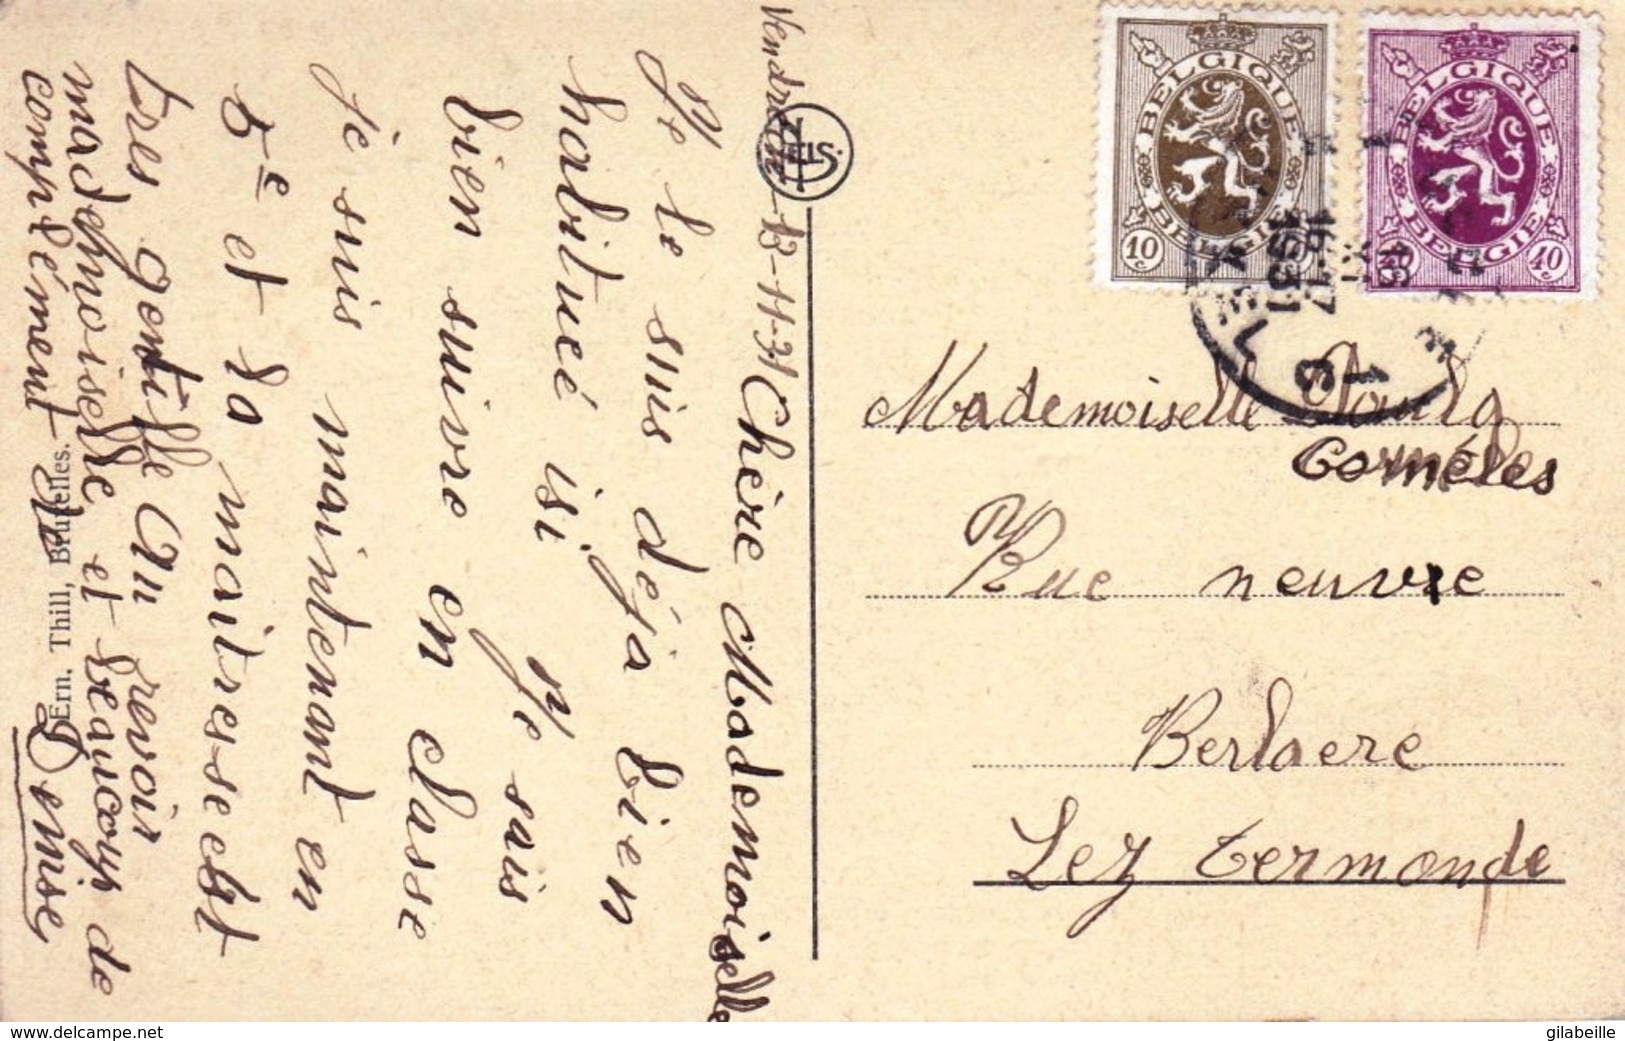 Vendredi 13-11-31
Chère Mademoiselle
Je le suis déja bien
habitueé isi. Je sais
bien suivre en classe
je suis maintenant en
5e et la maitresse est
très gentille Au revoir
mademoiselle et beaucoup de
complément de Denise
Ern. Thill, Bruxelles.
THILS.
BELGIQUE
BELGIE
10 c
10 c
BELGIQUE
BELGIE
40 c
40 c
16-17
1931
Mademoiselle Paula
Cornéles
Rue neuvre
Berlaere
Lez termonde
www.delcampe.net
gilabeille